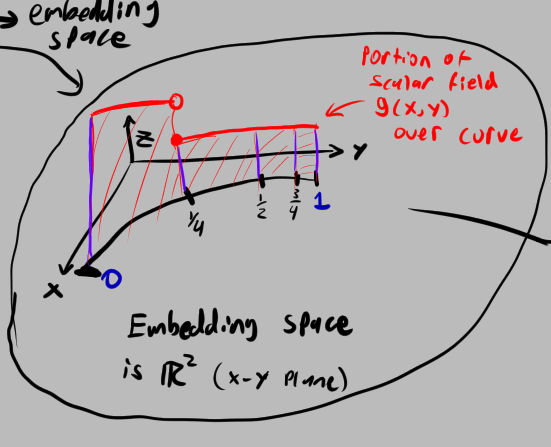 embedding
space
Portion of
scalar field
g(x,y)
over curve
Z
Y
1/4
1/2
3/4
1
X
0
Embedding space
is ℝ² (x-y plane)